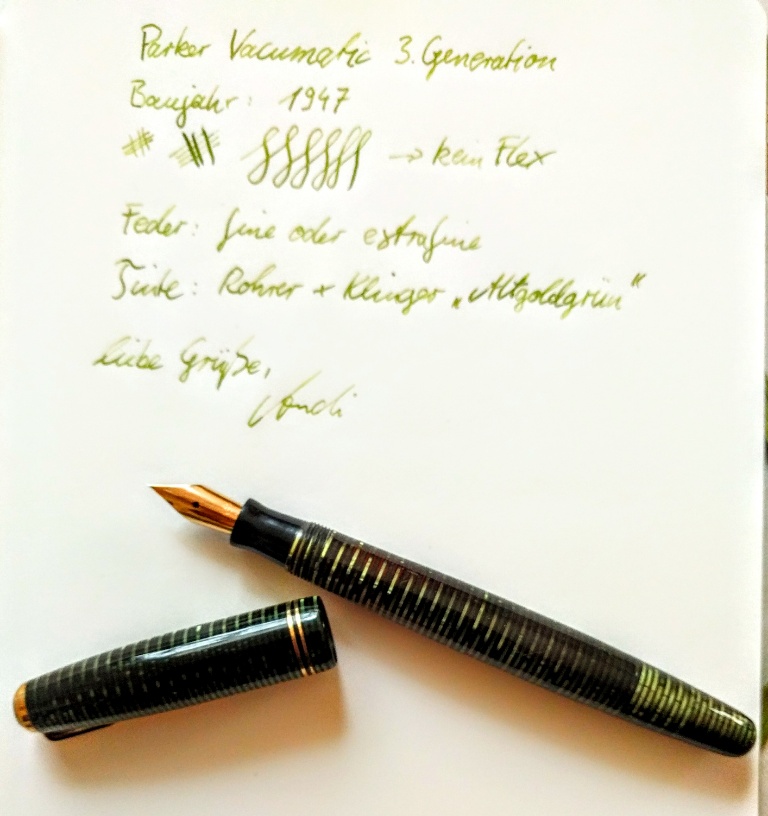 Parker Vacumatic 3. Generation
Baujahr: 1947
→ kein Flex
Feder: fine oder extrafine
Tinte: Rohrer + Klinger „Altgoldgrün“
liebe Grüße,
Andi